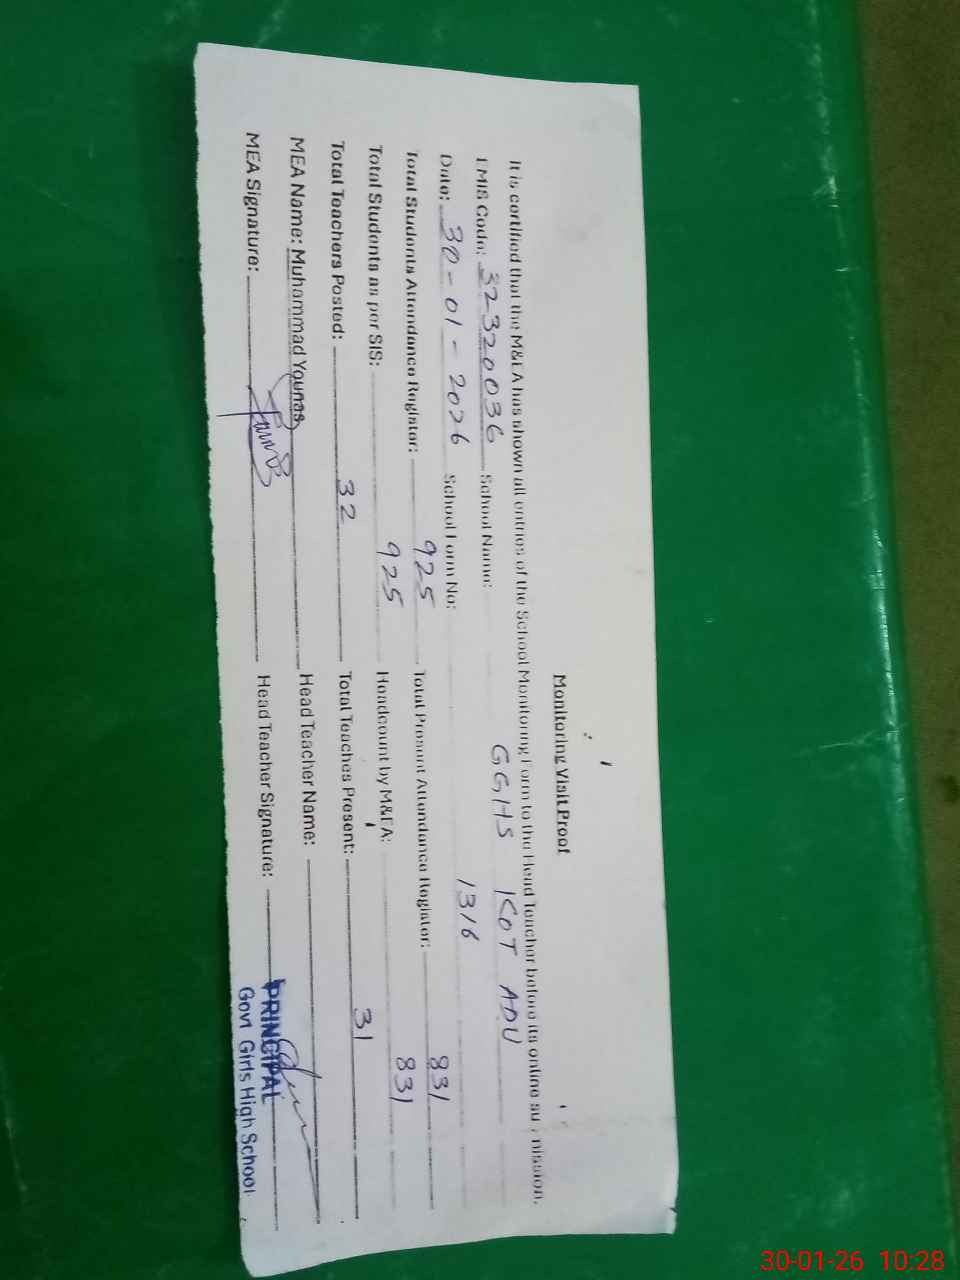 Monitoring Visit Proof
It is certified that the M&EA has shown all entries of the School Monitoring Form to the Head Teacher before its online su mission.
EMIS Code: 32320036 School Name: GGHS KOT ADU
Date: 30-01-2026 School Form No: 1316
Total Students Attendance Register: 925 Total Present Attendance Register: 831
Total Students as per SIS: 925 Headcount by M&EA: 831
Total Teachers Posted: 32 Total Teaches Present: 31
MEA Name: Muhammad Younas Head Teacher Name:
MEA Signature: Head Teacher Signature:
PRINCIPAL
Govt Girls High School
30-01-26 10:28